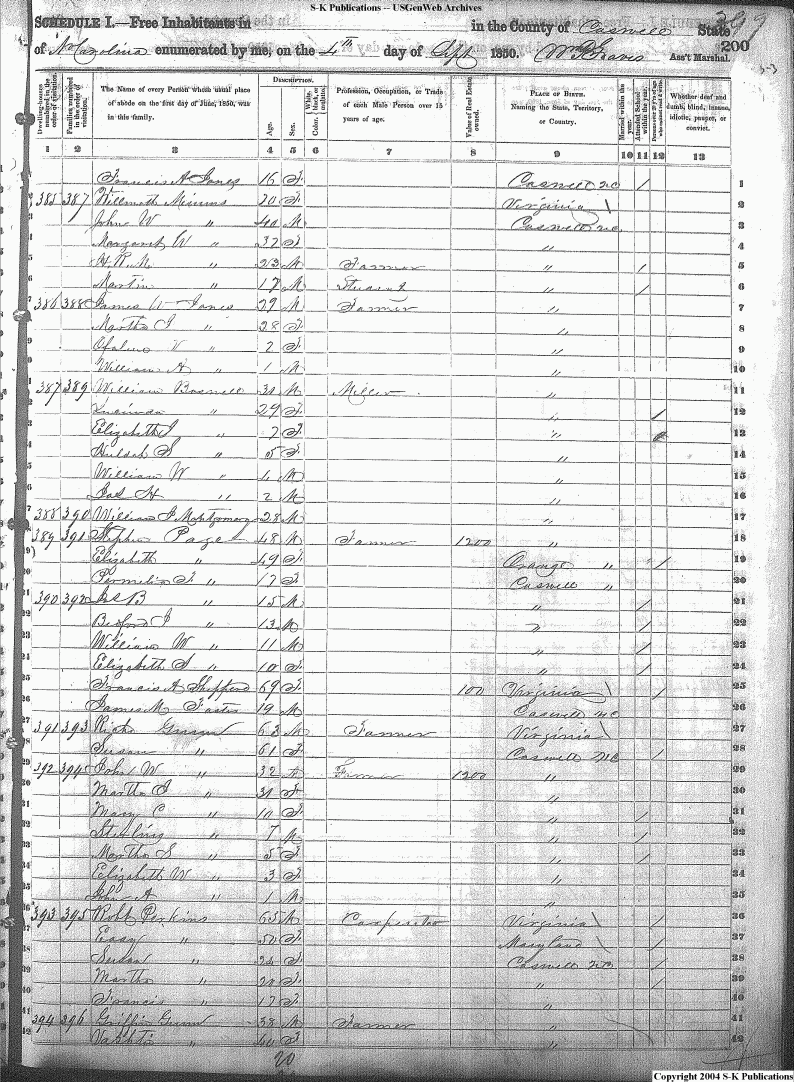 S-K Publications -- USGenWeb Archives
SCHEDULE I.—Free Inhabitants in in the County of Caswell State 399
of N Carolina enumerated by me, on the 4th day of Sept 1850. Wm Graves Ass't Marshal. 200
Dwelling-houses numbered in the order of visitation. Families numbered in the order of visitation. The Name of every Person whose usual place of abode on the first day of June, 1850, was in this family. DESCRIPTION. Age. Sex. Color, White, black, or mulatto. Profession, Occupation, or Trade of each Male Person over 15 years of age. Value of Real Estate owned. PLACE OF BIRTH. Naming the State, Territory, or Country. Married within the year. Attended School within the year. Persons over 20 y'rs of age who cannot read & write. Whether deaf and dumb, blind, insane, idiotic, pauper, or convict.
1 2 3 4 5 6 7 8 9 10 11 12 13
Francis A Jones 16 F Caswell NC / 1
385 387 Mimms 70 F Virginia 2
John W " 40 M Caswell NC 3
Margaret W " 32 F " 4
" 23 M Farmer " / 5
Martin " 17 M Student " / 6
386 388 James W Jones 29 M Farmer " 7
Martha J " 28 F " 8
" 2 F " 9
William A " 1 M " 10
387 389 William Boswell 30 M Miller " 11
Lucinda " 29 F " / 12
Elizabeth J " 7 F " 13
Huldah S " 5 F " 14
William W " 4 M " 15
Jas H " 2 M " 16
388 390 William J Montgomery 28 M " 17
389 391 Stephen Page 48 M Farmer 1200 " 18
Elizabeth " 49 F Orange " / 19
Permelia F " 17 F Caswell " 20
390 392 Jas B " 15 M " / 21
Bedford J " 13 M " / 22
William W " 11 M " / 23
Elizabeth S " 10 F " / 24
Francis A Shepperd 69 F 100 Virginia / 25
James M Foster 19 M Caswell NC 26
391 393 Richd Gunn 63 M Farmer Virginia 27
Susan " 61 F Caswell NC / 28
392 394 John W " 32 M Farmer 1200 " 29
Martha J " 31 F " 30
Mary C " 10 F " / 31
Sterling " 7 M " / 32
Martha S " 5 F " / 33
Elizabeth W " 3 F " 34
John A " 1 M " 35
393 395 Robt Perkins 65 M Carpenter Virginia / 36
Easy " 50 F Maryland / 37
Susan " 24 F Caswell NC / 38
Martha " 20 F " 39
Francis " 17 F " 40
394 396 Griffin Gunn 38 M Farmer " 41
Vashti " 40 F " 42
20
Copyright 2004 S-K Publications